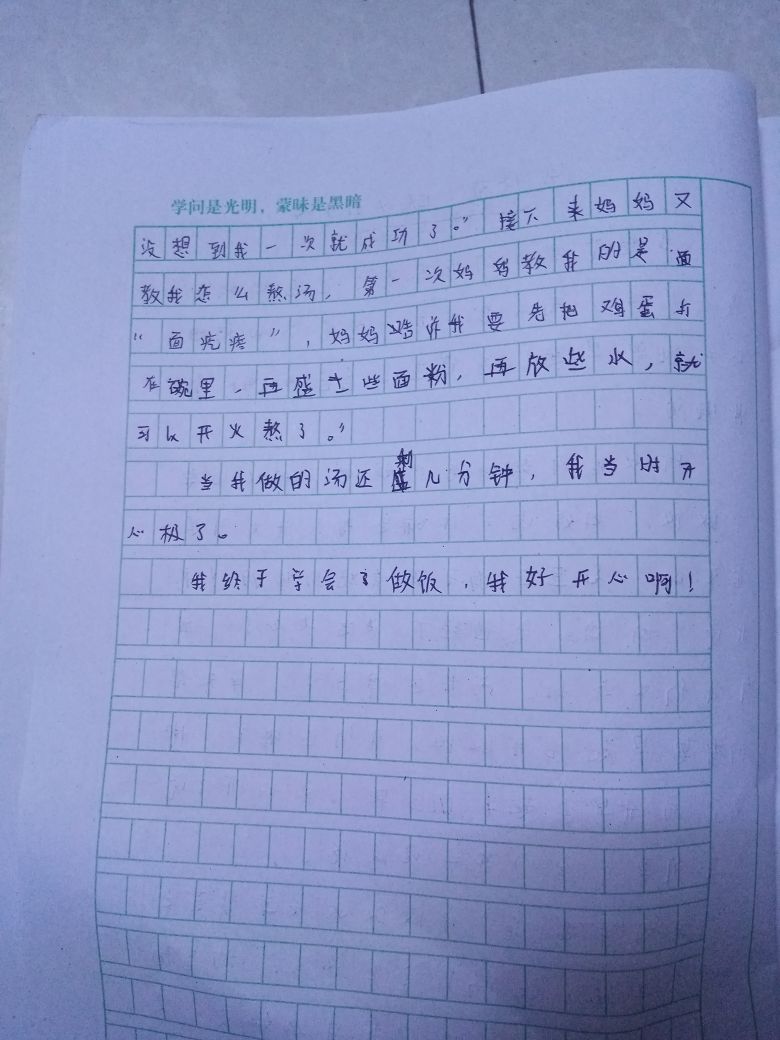 学问是光明，蒙昧是黑暗
没想到我一次就成功了。”接下来妈妈又
教我怎么熬汤，第一次妈妈教我的是面
“面疙瘩”，妈妈告诉我要先把鸡蛋打
在碗里，再盛上些面粉，再放些水，就
可以开火熬了。”
当我做的汤还剩几分钟，我当时开
心极了。
我终于学会了做饭，我好开心啊！